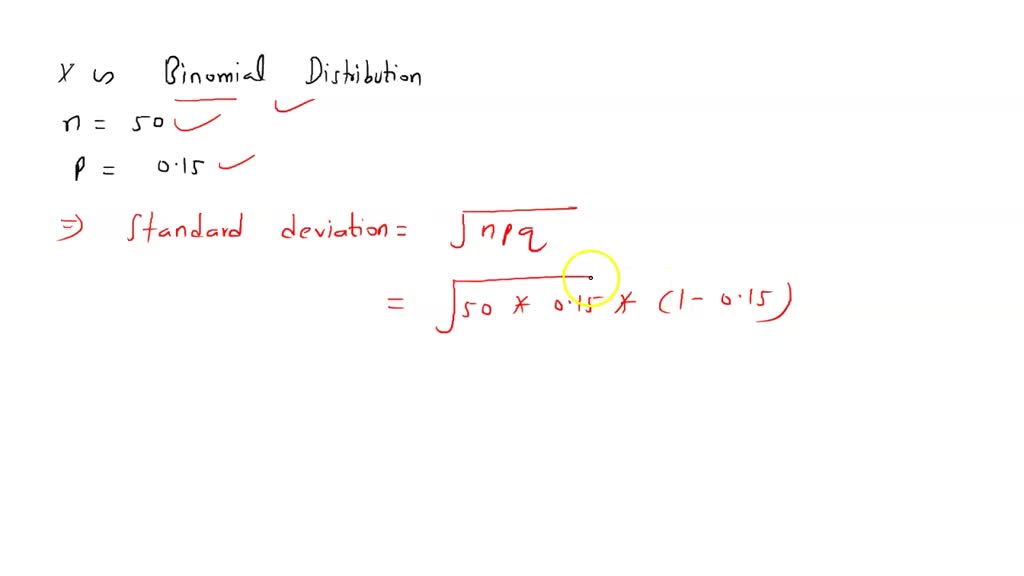 X ∽ Binomial Distribution
n = 50 ✓
P = 0.15 ✓
⇒ Standard deviation = √npq
= √50 * 0.15 * (1 - 0.15)